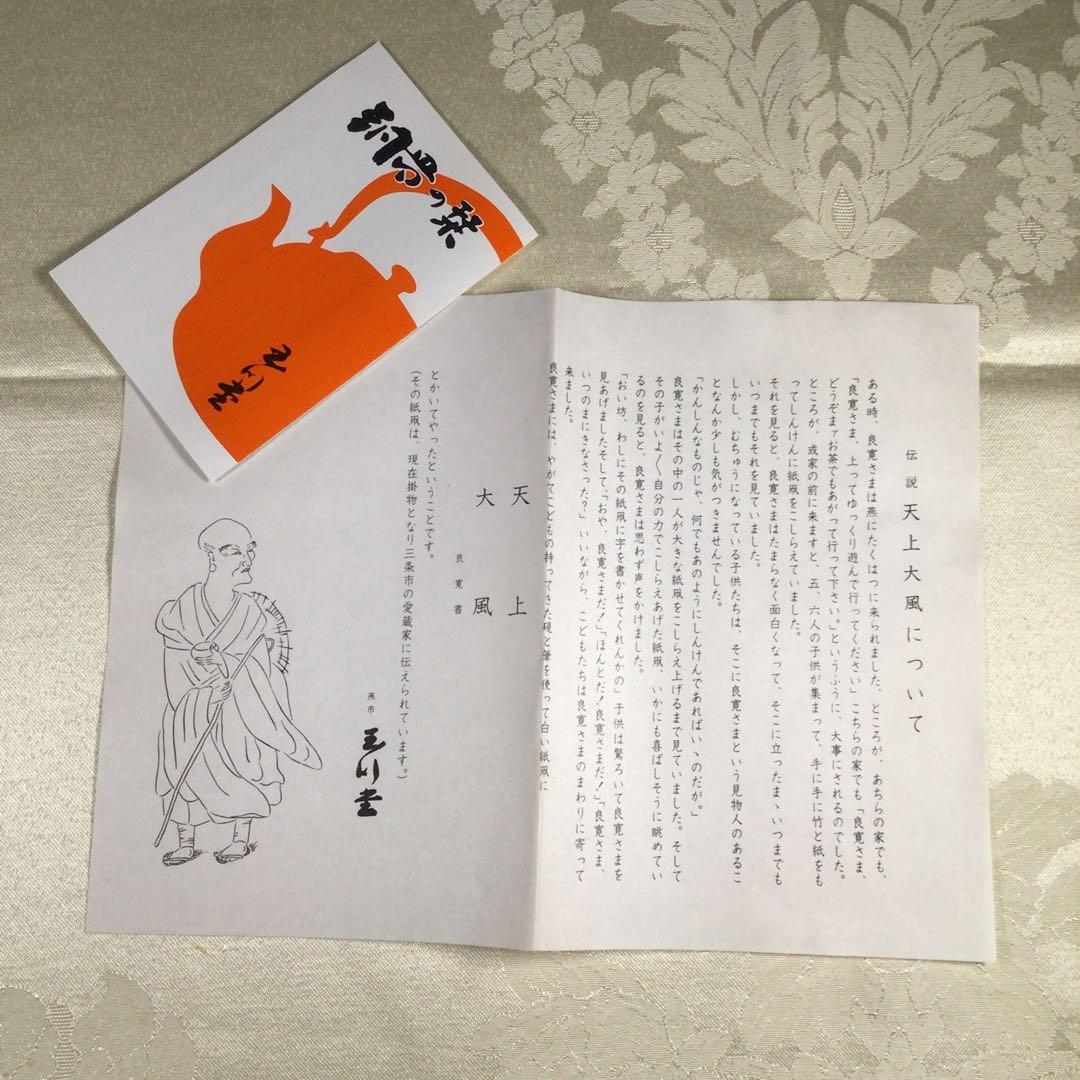 銅器の栞
玉川堂
伝説 天上大風について
ある時、良寛さまは燕にたくはつに来られました、ところが、あちらの家でも、
「良寛さま、上ってゆっくり遊んで行ってください」こちらの家でも「良寛さま、
どうぞまァお茶でもあがって行って下さい。」というふうに、大事にされるのでした。
ところが、或家の前に来ますと、五、六人の子供が集まって、手に手に竹と紙をも
ってしんけんに紙凧をこしらえていました。
それを見ると、良寛さまはたまらなく面白くなって、そこに立ったまゝいつまでも
いつまでもそれを見ていました。
しかし、むちゅうになっている子供たちは、そこに良寛さまという見物人のあるこ
となんか少しも気がつきませんでした。
「かんしんなものじゃ、何でもあのようにしんけんであればいゝのだが。」
良寛さまはその中の一人が大きな紙凧をこしらえ上げるまで見ていました。そして
その子がいよ〱自分の力でこしらえあげた紙凧、いかにも喜ばしそうに眺めてい
るのを見ると、良寛さまは思わず声をかけました。
「おい坊、わしにその紙凧に字を書かせてくれんかの」子供は驚ろいて良寛さまを
見あげましたそして、「おや、良寛さまだ!」「ほんとだ!良寛さまだ!」「良寛さま、
いつのまにきなさった?」いいながら、こどもたちは良寛さまのまわりに寄って
来ました。
良寛さまには、やがてこどもの持ってきた硯と筆を使って白い紙凧に
天上
大風
良寛書
とかいてやったということです。
(その紙凧は、現在掛物となり三条市の愛蔵家に伝えられています。)
燕市 玉川堂